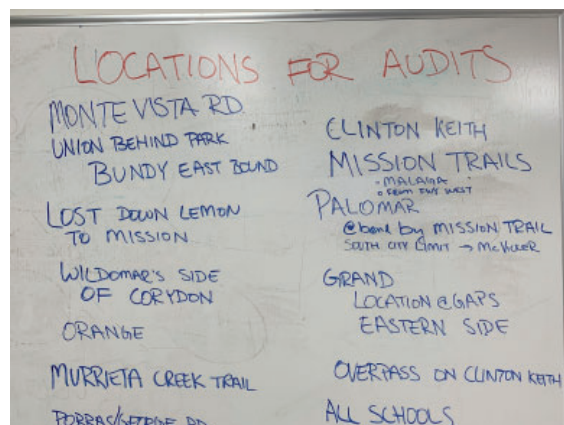 LOCATIONS FOR AUDITS
MONTE VISTA RD
UNION BEHIND PARK
BUNDY EAST BOUND
LOST DOWN LEMON
TO MISSION
WILDOMAR'S SIDE
OF CORYDON
ORANGE
MURRIETA CREEK TRAIL
PORRAS/GEORGE RD
CLINTON KEITH
MISSION TRAILS
• MALAGA
WEST
PALOMAR
@bend by MISSION TRAIL
SOUTH CITY LIMIT →
GRAND
LOCATION @ GAPS
EASTERN SIDE
OVERPASS ON CLINTON KEITH
ALL SCHOOLS